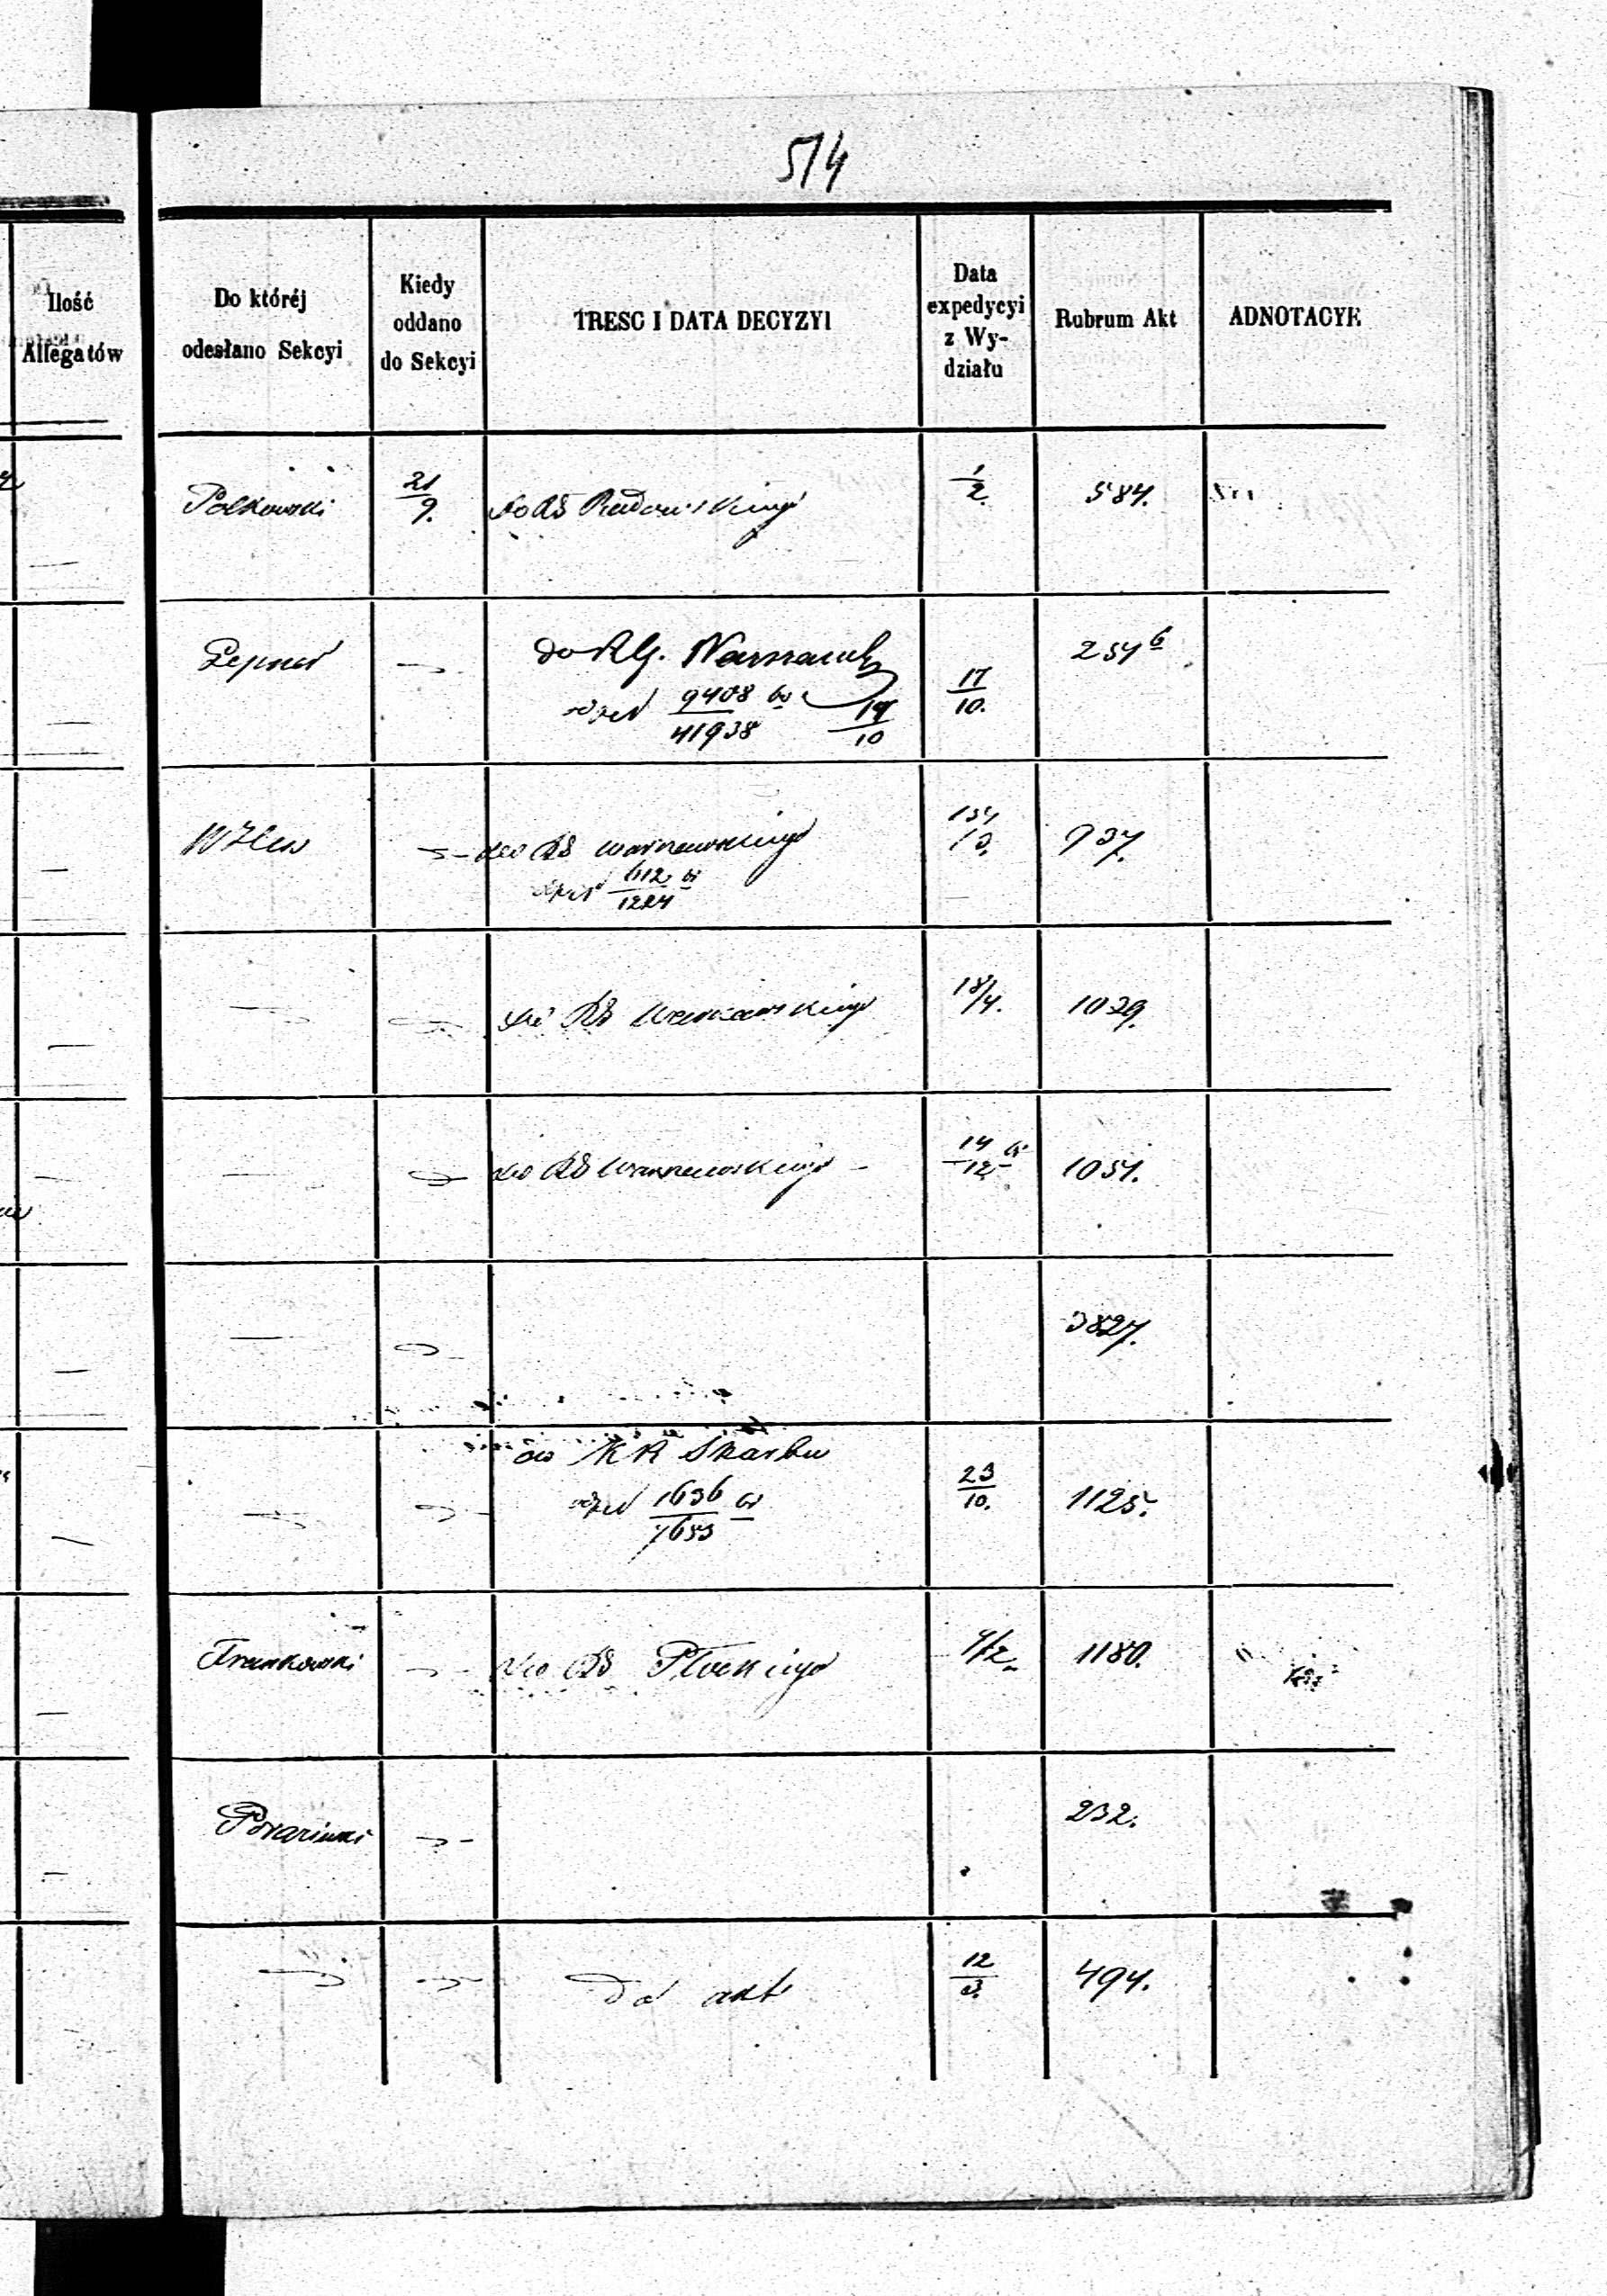 514
Ilość
Allegatów
Do któréj
odesłano Sekcyi
Kiedy
oddano
do Sekcyi
TRESC I DATA DECYZYI
Data
expedycyi
z Wy-
działu
Rubrum Akt
ADNOTACYE
Polkowski 21/9. do RG Radomskiego 1/2. 584.
do RG. Warszawsk 254 6
9408/41938 19/10 17/10.
do RG Warszawskiego 937.
612/1224
do RG Warszawskiego 18/4. 1029.
do RG Warszawskiego 14/12 1051.
3827.
do KR Skarbu
1636/7653 23/10. 1125.
Frankowski do RG Płockiego 4/2 1180.
232.
Do akt 12/3. 494.